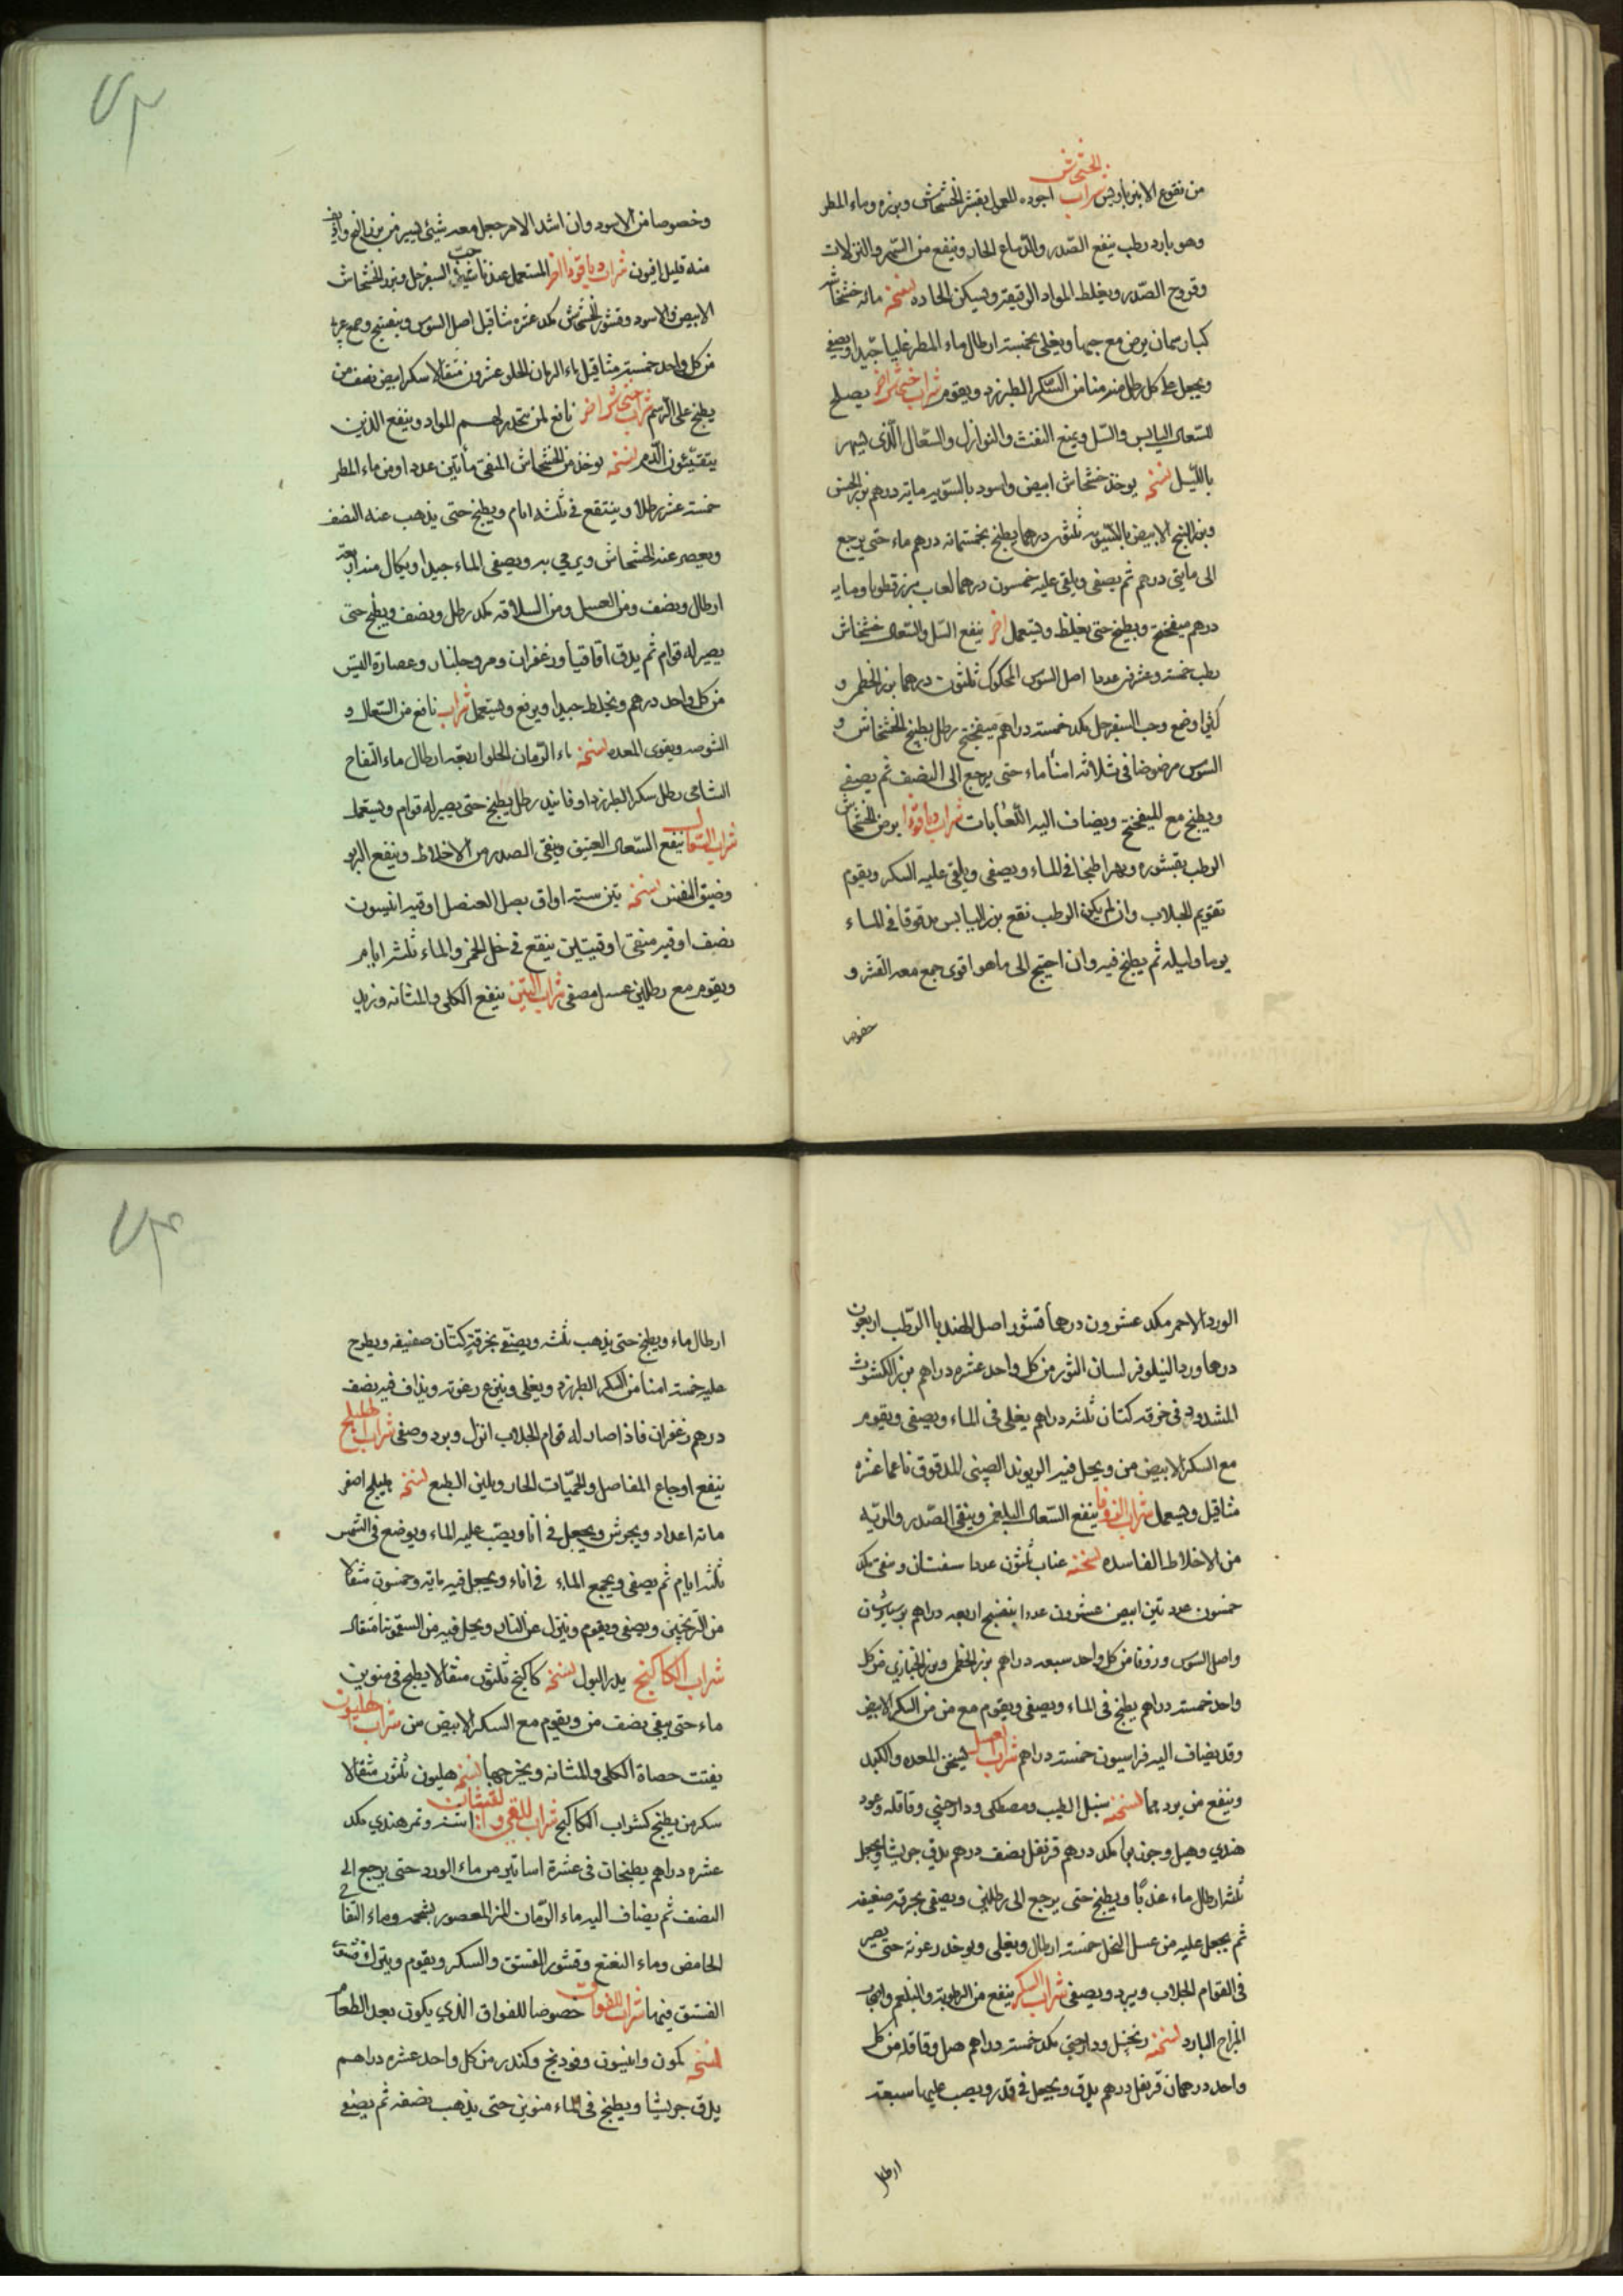 الخشخاش
من نقوع الانبرباريس شراب اجوده المعمول بقشر الخشخاش وبزره وماء المطر
وهو بارد رطب ينفع الصدر والدماغ الحار وينفع من السهر والنزلات
وقروح الصدر ويغلظ المواد الرقيقة ويسكن الحاده نسخته مائه خشخاشه
كبار سمان يرض مع حبها ويغلى بخمسة ارطال ماء المطر غليا جيدا ويصفى
ويجعل على كل رطل منه منا من السكر الطبرزد ويقوم شراب خشخاش اخر يصلح
للسعال اليابس والسل ويمنع النفث والنوازل والسعال الذى يسهر
بالليل نسخته يوخذ خشخاش ابيض واسود بالسويه مايه درهم بزر الخس
وبزر البنج الابيض بالسويه ثلثون درهما يطبخ بخمسمائه درهم ماء حتى يرجع
الى مايتى درهم ثم يصفى ويلقى عليه خمسون درهما لعاب بزرقطونا ومايه
درهم ميفختج ويطبخ حتى يغلظ ويستعمل اخر ينفع السل والسعال خشخاش
رطب خمسة وعشرين عددا اصل السوس المحكوك ثلثون درهما بزر الخطمى و
كثيرا وصمغ وحب السفرجل مكد خمسة دراهم ميفختج رطل يطبخ الخشخاش و
السوس مرضوضا فى ثلاثه امنأ ماء حتى يرجع الى النصف ثم يصفى
ويطبخ مع الميفختج ويضاف اليه اللعابات شراب دياقوذا يرض الخشخاش
الرطب بقشوره ويهرا طبخا فى الماء ويصفى ويلقى عليه السكر ويقوم
تقويم الجلاب وان لم يكن الرطب نقع بزر اليابس مدقوقا فى الماء
يوما وليله ثم يطبخ فيه وان احتيج الى ماهو اقوى جمع معه القشر و
خصوصا
وخصوصا من الاسود وان اشتد الامر جعل معه شيئ يسير من بزر البنج واقوى
منه قليل افيون شراب دياقوذا اخر المستعمل عندنا شيئ حب السفرجل وبزر الخشخاش
الابيض والاسود وقشور الخشخاش مكد عشره مثاقيل اصل السوس وبنفسج وصمغ عربى
من كل واحد خمسة مثاقيل ماء الرمان الحلو عشرون مثقالا سكر ابيض نصف من
يطبخ على الرسم شراب خشخاش اخر نافع لمن تتحدر لهم المواد وينفع الذين
يتقيئون الدم نسخته يوخذ من الخشخاش المنقى مأتين عددا ومن ماء المطر
خمسة عشر رطلا وينتقع فى ثلثه ايام ويطبخ حتى يذهب عنه النصف
ويعصر عنه الخشخاش ويرمي به ويصفى الماء جيدا ويكال منه اربعة
ارطال ونصف ومن العسل ومن السلاقه مكد رطل ونصف ويطبخ حتى
يصير له قوام ثم يدق اقاقيا وزعفران ومر وجلنار وعصارة التيس
من كل واحد درهم ويخلط جيدا ويرفع ويستعمل شراب نافع من السعال و
الشوصه ويقوى المعده نسخته ماء الرمان الحلو اربعة ارطال ماء التفاح
الشامى رطل سكر الطبرزد او فانيد رطل يطبخ حتى يصير له قوام ويستعمل
شراب السعال ينفع السعال العتيق وينقى الصدر من الاخلاط وينفع الربو
وضيق النفس نسخته تين سته اواق بصل العنصل اوقيه انيسون
نصف اوقيه منقى اوقيتين ينقع فى خل الخمر والماء ثلثة ايام
ويقوم مع رطلين عسل مصفى شراب التين ينفع الكلى والمثانه ويزيد
الورد الاحمر مكد عشرون درهمأ قشور اصل الهندبا الرطب اربعون
درهما ورد النيلوفر لسان الثور من كل واحد عشره دراهم بزر الكشوث
المشدود فى خرقه كتان ثلثه دراهم يغلى فى الماء ويصفى ويقوم
مع السكر الابيض من ويحل فيه الريوند الصينى المدقوق ناعما عشره
مثاقيل ويستعمل شراب الزوفا ينفع السعال البلغمى وينقى الصدر والريه
من الاخلاط الفاسده نسخته عناب ثلثون عددا سفستان ومنقى مكد
خمسون عدد تين ابيض عشرون عددا بنفسج اربعه دراهم برسياوشان
واصل السوس وزوفا من كل واحد سبعه دراهم بزر الخطمى وبزر الخبازي من كل
واحد خمسة دراهم يطبخ فى الماء ويصفى ويقوم مع من من السكر الابيض
وقد يضاف اليه فراسيون خمسة دراهم شراب العسل يسخن المعده والكبد
وينفع من بردهما نسخته سنبل الطيب ومصطكى ودارچينى وقاقله وعود
هندي وهيل وجوزبوا مكد درهم قرنفل نصف درهم يدق جريشا ويجعل
ثلثه ارطال ماء عذبا ويطبخ حتى يرجع الى رطلين ويصفى بخرقه صفيقه
ثم يجعل عليه من عسل النحل خمسة ارطال ويغلى ويوخذ رغوته حتى يصير
فى القوام الجلاب ويبرد ويصفى شراب السكر ينفع من الرطوبة والبلغم واصحاب
المزاج البارد نسخته زنجبيل ودارچينى مكد خمسة دراهم هيل وقاقله من كل
واحد درهمان قرنفل درهم يدق ويجعل فى قدر ويصب عليها سبعة
ارطال
ارطال ماء ويطبخ حتى يذهب ثلثه ويصفى بخرقة كتان صفيقه ويطرح
عليه خمسة امنا من السكر الطبرزد ويغلى وينزع رغوته ويذاف فيه نصف
درهم زعفران فاذا صار له قوام الجلاب انزل وبرد وصفى شراب الهليلج
ينفع اوجاع المفاصل والحميات الحار ويلين الطبع نسخته هليلج اصفر
مائه اعداد ويجرش ويجعل فى انا ويصب عليه الماء ويوضع فى الشمس
ثلثه ايام ثم يصفى ويجمع الماء فى اناء ويجعل فيه مايه وخمسون مثقالا
من الترنجبين ويصفى ويقوم وينزل عن النار ويحل فيه من السقمونيا مثقال
شراب الكاكنج يدر البول نسخته كاكنج ثلثون مثقالا يطبخ فى منوين
ماء حتى يبقى نصف من ويقوم مع السكر الابيض من شراب هليون
يفتت حصاة الكلى والمثانه ويخرجها نسخته هليون ثلثون مثقالا
سكر من يطبخ كشراب الكاكنج شراب للقى والغثيان اشنه وتمر هندي مكد
عشره دراهم يطبخان فى عشرة اساتير من ماء الورد حتى يرجع الى
النصف ثم يضاف اليه ماء الرمان المز المعصور بشحمه وماء التفاح
الحامض وماء النعنع وقشور الفستق والسكر ويقوم ويترك قشور
الفستق فيها شراب للفواق خصوصا للفواق الذي يكون بعد الطعام
نسخته كمون وانيسون وفودنج وكندر من كل واحد عشره دراهم
يدق جريشا ويطبخ فى الماء منوين حتى يذهب نصفه ثم يصفى